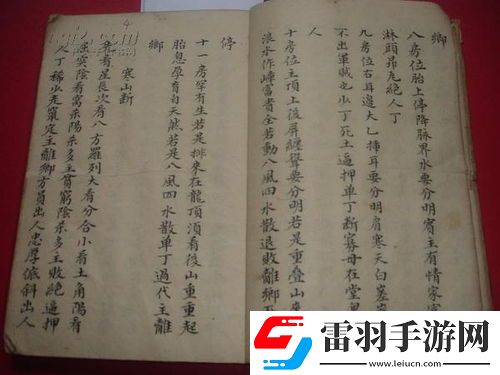 鄉
八房位胎上停降脉界水要分明賓主有情家
淋頭昂 絕人丁
九房位右耳邊大 耳要分明肩寒天白塞
不出軍賊也少丁死土逼押單丁斷寡母在堂
人
十房位主頂上後屏纏聳要分明若是重疊山
浪水作嶂富貴全若動八風四水散退敗離鄉
停
十一房罕有生若是排來在龍頂須看後山重重起
胎息孕育自天然若是八風四水散單丁過代主離
鄉
寒山断
看星辰次看八方羅列大看分合小看土角陽看
屈突陰看窩 陽 多主貧窮陰 多主敗絕逼押
人丁稀少走竄定主離鄉方員出人忠厚傾斜出人
4
雷羽手游网
www.leiucn.com